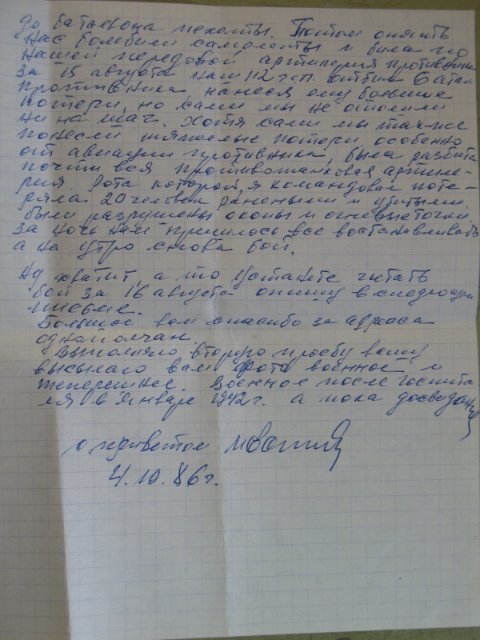 до батальона пехоты. Потом опять
нас бомбили самолеты и била по
нашей передовой артилерия противника
за 15 августа наш 112 сп. отбил 6 атак
противника, нанеся ему большие
потери, но сами мы не отошли
ни на шаг. Хотя сами мы так-же
понесли тяжелые потери особенно
от авиации противника, была разбита
почти вся противотанковая артиле-
рия. Рота которой я командовал поте-
ряла 20 человек ранеными и убитыми.
были разрушены окопы и огневые точки.
за ночь нам пришлось все востанавливать
а на утро снова бой.
Ну хватит, а то устанете читать
бой за 16 августа опишу в следующем
письме.
Большое вам спасибо за адреса
однополчан.
Выполняю вторую просьбу вашу
высылаю вам фото военное и
теперешнее. Военное после госпита
ля в январе 1942 г. а пока досвидания
с приветом
4.10.86 г.